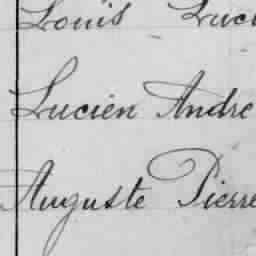 Louis Luci
Lucien Andre
Auguste Pierre